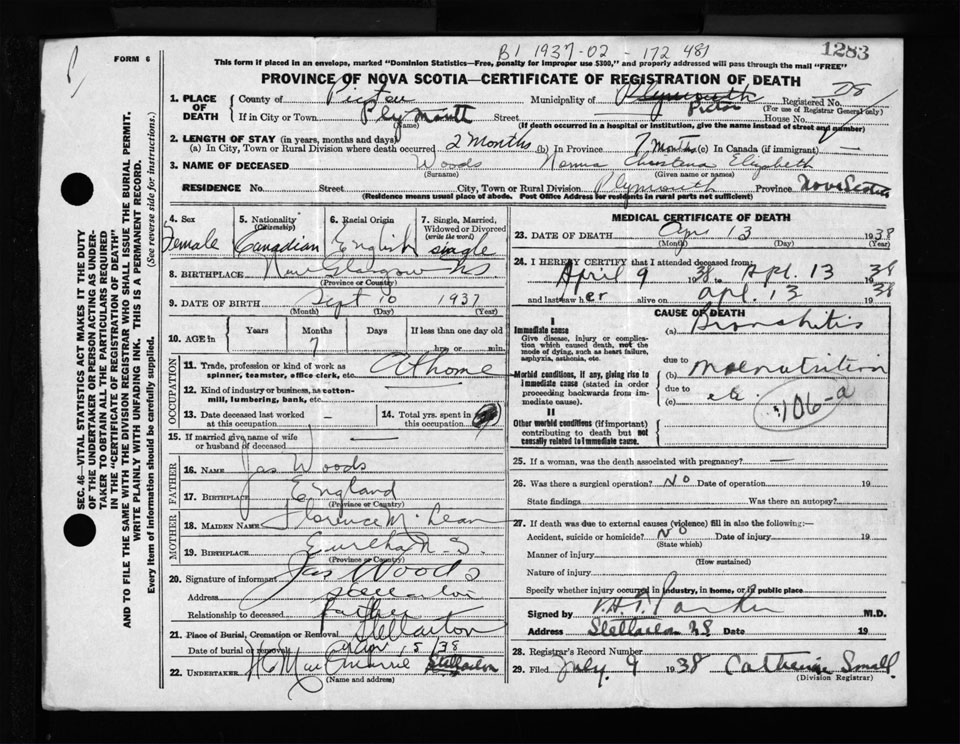 B1 1937-02-172481
1283
FORM 6
This form if placed in an envelope, marked "Dominion Statistics—Free, penalty for improper use $300," and properly addressed will pass through the mail "FREE"
PROVINCE OF NOVA SCOTIA—CERTIFICATE OF REGISTRATION OF DEATH
1. PLACE OF DEATH County of Pictou Municipality of Plymouth Pictou Registered No. 28
(For use of Registrar General only)
If in City or Town Plymouth Street House No.
(Name) (If death occurred in a hospital or institution, give the name instead of street and number)
2. LENGTH OF STAY (in years, months and days)
(a) In City, Town or Rural Division where death occurred 2 Months (b) In Province 7 Months (c) In Canada (if immigrant) —
3. NAME OF DECEASED Woods Norma Christena Elizabeth
(Surname) (Given name or names)
RESIDENCE No. Street City, Town or Rural Division Plymouth Province Nova Scotia
(Residence means usual place of abode. Post Office Address for residents in rural parts not sufficient)
4. Sex Female
5. Nationality (Citizenship) Canadian
6. Racial Origin English
7. Single, Married, Widowed or Divorced (write the word) single
8. BIRTHPLACE New Glasgow NS.
(Province or Country)
9. DATE OF BIRTH Sept 10 1937
(Month) (Day) (Year)
10. AGE in Years Months 7 Days If less than one day old hrs. or min.
OCCUPATION
11. Trade, profession or kind of work as spinner, teamster, office clerk, etc. At home
12. Kind of industry or business, as cotton-mill, lumbering, bank, etc.
13. Date deceased last worked at this occupation —
14. Total yrs. spent in this occupation
15. If married give name of wife or husband of deceased —
FATHER
16. NAME Jas Woods
17. BIRTHPLACE England
(Province or Country)
MOTHER
18. MAIDEN NAME Florence McLean
19. BIRTHPLACE Eureka N.S.
(Province or Country)
20. Signature of informant Jas Woods
Address Stellarton
Relationship to deceased father
21. Place of Burial, Cremation or Removal Stellarton
Date of burial or removal 15/38
22. UNDERTAKER Stellarton
(Name and address)
MEDICAL CERTIFICATE OF DEATH
23. DATE OF DEATH Apr 13 1938
(Month) (Day) (Year)
24. I HEREBY CERTIFY that I attended deceased from:
April 9 1938 to Apl. 13 1938
and last saw her alive on apl. 13 1938
CAUSE OF DEATH
I
Immediate cause
Give disease, injury or complication which caused death, not the mode of dying, such as heart failure, asphyxia, asthenia, etc.
(a) Bronchitis
due to
Morbid conditions, if any, giving rise to immediate cause (stated in order proceeding backwards from immediate cause).
(b) malnutrition
due to
(c) etc. 106-a
II
Other morbid conditions (if important) contributing to death but not causally related to immediate cause.
25. If a woman, was the death associated with pregnancy? —
26. Was there a surgical operation? No Date of operation 19
State findings Was there an autopsy?
27. If death was due to external causes (violence) fill in also the following:—
Accident, suicide or homicide? No Date of injury 19
(State which)
Manner of injury
(How sustained)
Nature of injury
Specify whether injury occurred in industry, in home, or in public place
Signed by Parker M.D.
Address Stellarton NS Date 19
28. Registrar's Record Number
29. Filed July. 9 1938 Catherine Small.
(Division Registrar)
SEC. 46—VITAL STATISTICS ACT MAKES IT THE DUTY
OF THE UNDERTAKER OR PERSON ACTING AS UNDER-
TAKER TO OBTAIN ALL THE PARTICULARS REQUIRED
IN THE "CERTIFICATE OF REGISTRATION OF DEATH"
AND TO FILE THE SAME WITH THE DIVISION REGISTRAR WHO SHALL ISSUE THE BURIAL PERMIT.
WRITE PLAINLY WITH UNFADING INK. THIS IS A PERMANENT RECORD.
Every item of information should be carefully supplied. (See reverse side for instructions.)